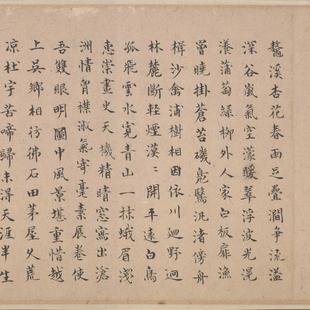 鰲溪杏花春雨足疊澗爭流溢
深谷嵐氣空濛曖翠浮波光滉
瀁蒲萄綠柳外人家白板扉漁
罾曉掛蒼苔磯鳧鷖汎渚傍舟
楫沙禽浦樹相因依川迴野迥
林麓斷輕煙漠〻開平遠白鳥
孤飛雲水寬青山一抹蛾眉淺
惠崇畫史天機精晴窓寫出滄
洲情胷襟淑氣寄毫素展卷使
吾雙眼明圖中風景堪重惜越
上吳鄉相彷彿石田茅屋久荒
凉杜宇苦啼歸未得天涯半生